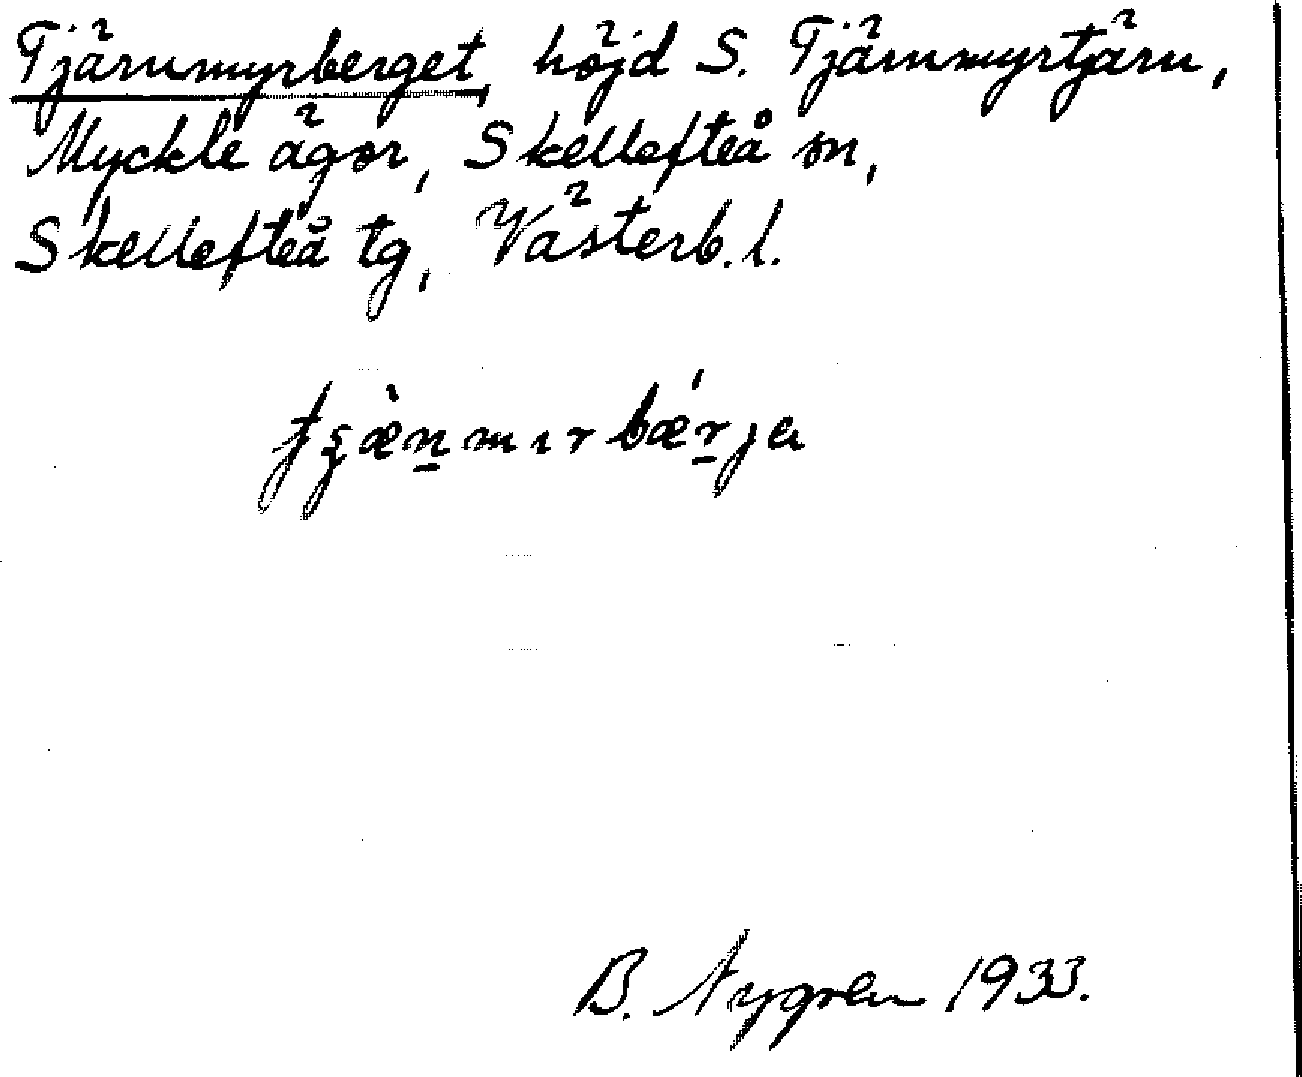 Tjärnmyrberget, höjd S. Tjärnmyrtjärn,
Myckle ägor, Skellefteå sn,
Skellefteå tg, Västerb. l.
B. Nygren 1933.